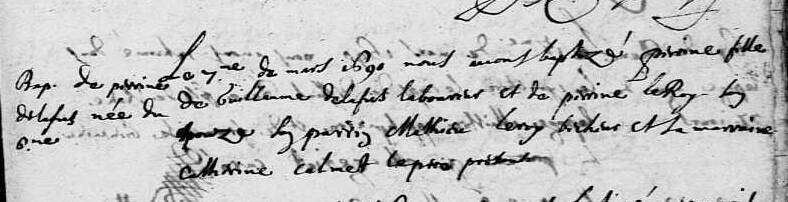 Bap. de perrine
delafus née du
6me
Le 7me de mars 1690 nous avons baptizé perrine fille
de Guillaume delafus laboureur et de perrine LeRoy sa
epouze le parrin Mathieu leroy et la marraine
Catherine calmet le pere present